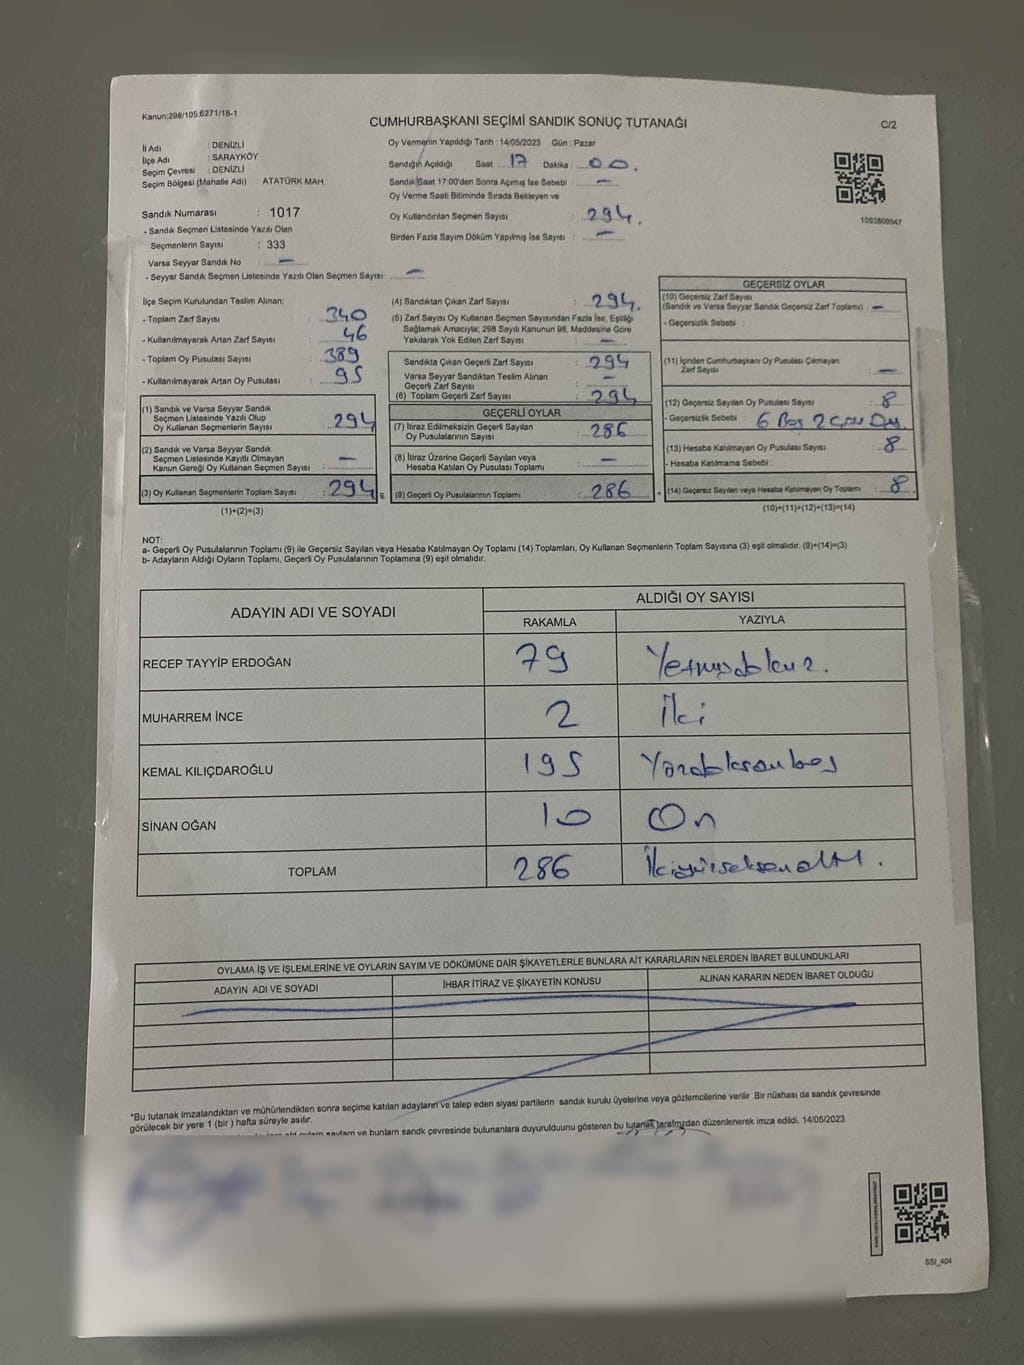 Kanun:298/105:6271/18-1
CUMHURBAŞKANI SEÇİMİ SANDIK SONUÇ TUTANAĞI
C/2
İl Adı : DENİZLİ
İlçe Adı : SARAYKÖY
Seçim Çevresi : DENİZLİ
Seçim Bölgesi (Mahalle Adı) ATATÜRK MAH.
Sandık Numarası : 1017
- Sandık Seçmen Listesinde Yazılı Olan
Seçmenlerin Sayısı : 333
Varsa Seyyar Sandık No —
- Seyyar Sandık Seçmen Listesinde Yazılı Olan Seçmen Sayısı: —
Oy Vermenin Yapıldığı Tarih : 14/05/2023 Gün : Pazar
Sandığın Açıldığı Saat : 17 Dakika : 00.
Sandık Saat 17:00'den Sonra Açımış İse Sebebi : —
Oy Verme Saati Bitiminde Sırada Bekleyen ve
Oy Kullandırılan Seçmen Sayısı : 294.
Birden Fazla Sayım Döküm Yapılmış İse Sayısı : —
1093809947
İlçe Seçim Kurulundan Teslim Alınan:
- Toplam Zarf Sayısı : 340
- Kullanılmayarak Artan Zarf Sayısı : 46
- Toplam Oy Pusulası Sayısı : 389
- Kullanılmayarak Artan Oy Pusulası : 95
(1) Sandık ve Varsa Seyyar Sandık
Seçmen Listesinde Yazılı Olup
Oy Kullanan Seçmenlerin Sayısı : 294
(2) Sandık ve Varsa Seyyar Sandık
Seçmen Listesinde Kayıtlı Olmayan
Kanun Gereği Oy Kullanan Seçmen Sayısı : —
(3) Oy Kullanan Seçmenlerin Toplam Sayısı : 294
(1)+(2)=(3)
(4) Sandıktan Çıkan Zarf Sayısı : 294.
(5) Zarf Sayısı Oy Kullanan Seçmen Sayısından Fazla İse, Eşitliği
Sağlamak Amacıyla; 298 Sayılı Kanunun 98. Maddesine Göre
Yakılarak Yok Edilen Zarf Sayısı : —
Sandıkta Çıkan Geçerli Zarf Sayısı : 294
Varsa Seyyar Sandıktan Teslim Alınan
Geçerli Zarf Sayısı : —
(6) Toplam Geçerli Zarf Sayısı : 294
GEÇERLİ OYLAR
(7) İtiraz Edilmeksizin Geçerli Sayılan
Oy Pusulalarının Sayısı : 286
(8) İtiraz Üzerine Geçerli Sayılan veya
Hesaba Katılan Oy Pusulası Toplamı : —
(9) Geçerli Oy Pusulalarının Toplamı : 286
GEÇERSİZ OYLAR
(10) Geçersiz Zarf Sayısı
(Sandık ve Varsa Seyyar Sandık Geçersiz Zarf Toplamı) : —
- Geçersizlik Sebebi :
(11) İçinden Cumhurbaşkanı Oy Pusulası Çıkmayan
Zarf Sayısı : —
(12) Geçersiz Sayılan Oy Pusulası Sayısı : 8
- Geçersizlik Sebebi : 6 Boş 2
(13) Hesaba Katılmayan Oy Pusulası Sayısı : 8
- Hesaba Katılmama Sebebi :
(14) Geçersiz Sayılan veya Hesaba Katılmayan Oy Toplamı : 8
(10)+(11)+(12)+(13)=(14)
NOT:
a- Geçerli Oy Pusulalarının Toplamı (9) ile Geçersiz Sayılan veya Hesaba Katılmayan Oy Toplamı (14) Toplamları, Oy Kullanan Seçmenlerin Toplam Sayısına (3) eşit olmalıdır. (9)+(14)=(3)
b- Adayların Aldığı Oyların Toplamı, Geçerli Oy Pusulalarının Toplamına (9) eşit olmalıdır.
ADAYIN ADI VE SOYADI ALDIĞI OY SAYISI
RAKAMLA YAZIYLA
RECEP TAYYİP ERDOĞAN 79 Yetmişdokuz.
MUHARREM İNCE 2 İki
KEMAL KILIÇDAROĞLU 195 Yüzdoksanbeş
SİNAN OĞAN 10 On
TOPLAM 286 İkiyüzseksenaltı.
OYLAMA İŞ VE İŞLEMLERİNE VE OYLARIN SAYIM VE DÖKÜMÜNE DAİR ŞİKAYETLERLE BUNLARA AİT KARARLARIN NELERDEN İBARET BULUNDUKLARI
ADAYIN ADI VE SOYADI İHBAR İTİRAZ VE ŞİKAYETİN KONUSU ALINAN KARARIN NEDEN İBARET OLDUĞU
*Bu tutanak imzalandıktan ve mühürlendikten sonra seçime katılan adayların ve talep eden siyasi partilerin sandık kurulu üyelerine veya gözlemcilerine verilir .Bir nüshası da sandık çevresinde
görülecek bir yere 1 (bir ) hafta süreyle asılır.
sayılan ve bunların sandık çevresinde bulunanlara duyurulduunu gösteren bu tutanak tarafımızdan düzenlenerek imza edildi. 14/05/2023
SSI_404